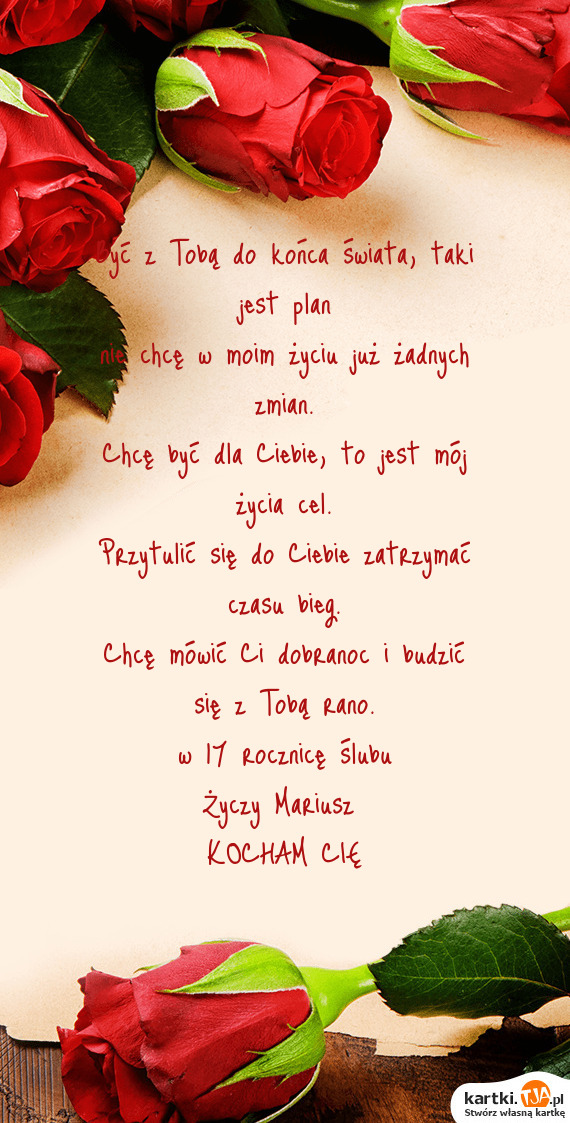 Być z Tobą do końca świata, taki
jest plan
nie chcę w moim życiu już żadnych
zmian.
Chcę być dla Ciebie, to jest mój
życia cel.
Przytulić się do Ciebie zatrzymać
czasu bieg.
Chcę mówić Ci dobranoc i budzić
się z Tobą rano.
w 17 rocznicę ślubu
Życzy Mariusz
KOCHAM CIĘ
kartki.TJA.pl
Stwórz własną kartkę